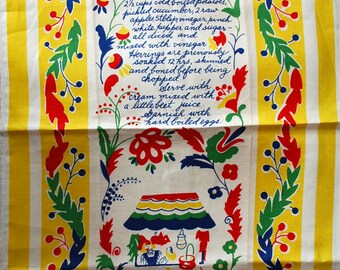 2½ cups cold boiled potatoes,
pickled cucumber, 2 raw
apples, 5 tblsp vinegar, pinch
white pepper and sugar -
all diced and
mixed with vinegar
Herrings are previously
soaked 12 hrs, skinned
and boned before being
chopped
Serve with
cream mixed with
a little beet juice
Garnish with
hard boiled eggs.